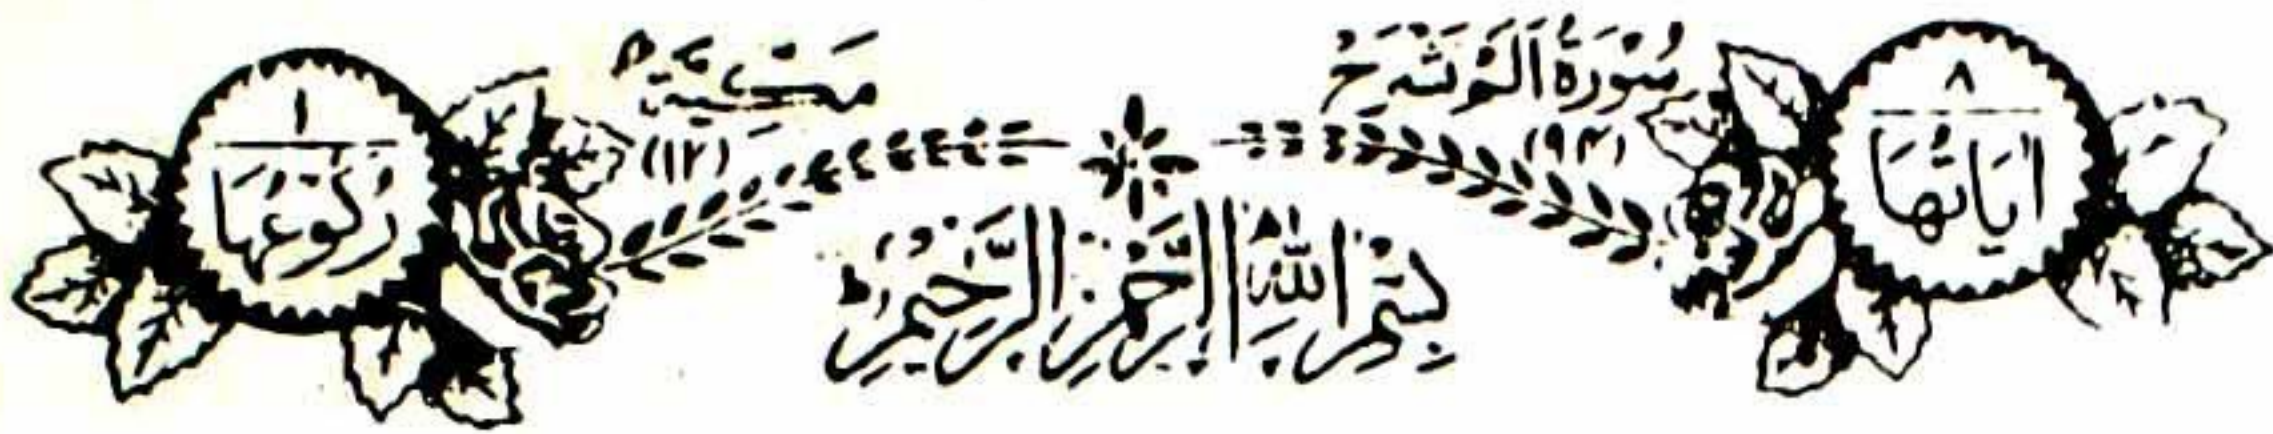 ٨
اٰيَاتُهَا
سُوْرَةُ اَلَمْ نَشْرَحْ
(٩٤)
مَكِّيَّةٌ
(١٢)
١
رُكُوْعُهَا
بِسْمِ اللّٰهِ الرَّحْمٰنِ الرَّحِيْمِ